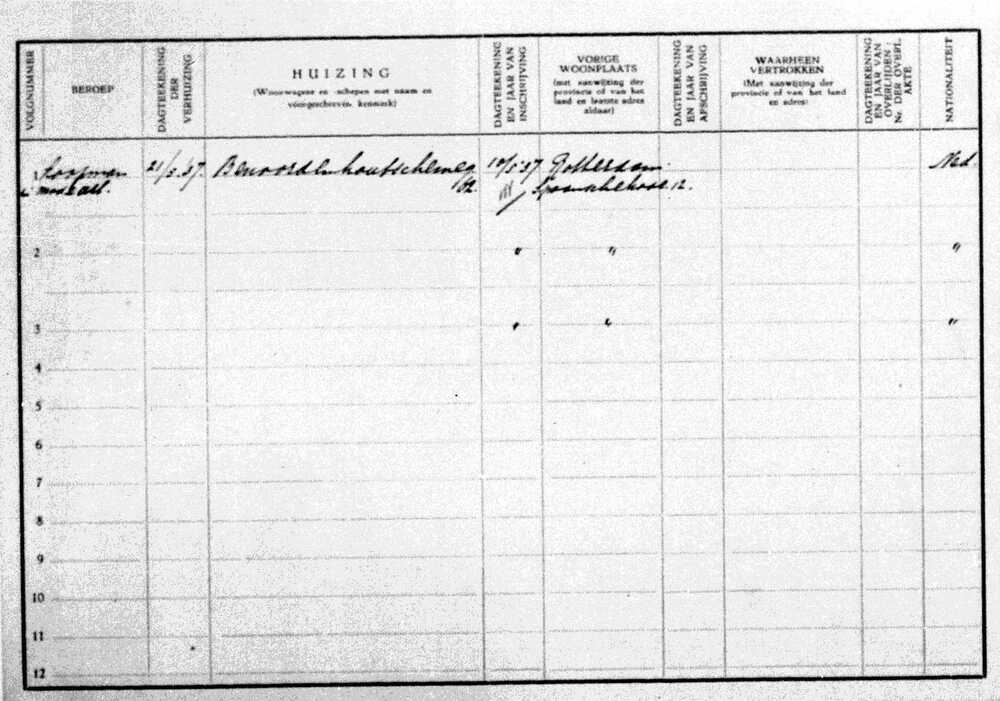 VOLGNUMMER
BEROEP
DAGTEEKENING
DER
VERHUIZING
HUIZING
(Woonwagens en schepen met naam en
voorgeschreven kenmerk)
DAGTEEKENING
EN JAAR VAN
INSCHRIJVING
VORIGE
WOONPLAATS
(met aanwijzing der
provincie of van het
land en laatste adres
aldaar)
DAGTEEKENING
EN JAAR VAN
AFSCHRIJVING
WAARHEEN
VERTROKKEN
(Met aanwijzing der
provincie of van het land
en adres)
DAGTEEKENING
EN JAAR VAN
OVERLIJDEN :
Nr. DER OVERL.
AKTE
NATIONALITEIT
Koopman 21/5.'37. Benoordenhoutscheweg 10/5.'37 Rotterdam. Ned.
102. Spaanschekade 12.
2 " " "
3 " " "
4
5
6
7
8
9
10
11
12